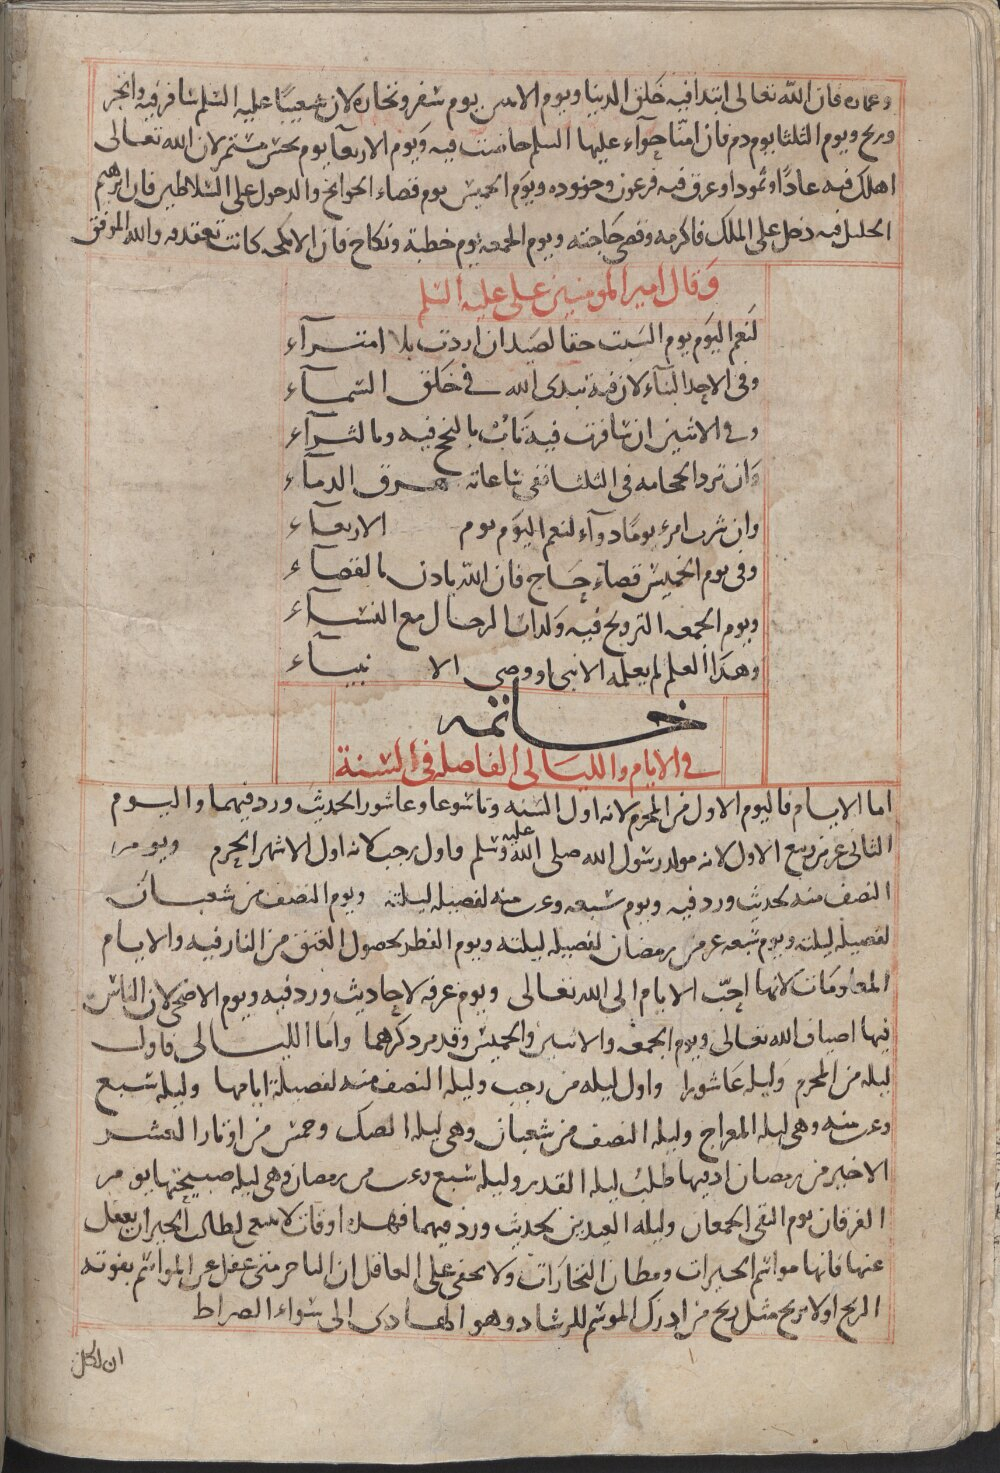 وعماره فان الله تعالى ابتدا فيه خلق الدنيا ويوم الاثنين يوم سفر وتجاره لان شعيبا عليه السلم سافر فيه واتجر
وربح ويوم الثلثا يوم دم فان امنا حوآء عليها السلم حاضت فيه ويوم الاربعآ يوم نحس مستمر لان الله تعالى
اهلك فيه عادًا وثمودا وغرق فيه فرعون وجنوده ويوم الخميس يوم قضاء الحوائج والدخول على السلاطين فان ابرهيم
الخليل فيه دخل على الملك فاكرمه وقضى حاجته ويوم الجمعه يوم خطبة ونكاح فان الانكحه كانت تعقد فيه والله الموفق
وقال امير المومنين على عليه السلم
لنعم اليوم يوم السبت حقا لصيد ان اردت بلا امترآء
وفى الاحد البنآء لان فيه تبدى الله فى خلق السمآء
وفى الاثنين ان سافرت فيه بالنجح فيه وبالثرآء
وان ترد الحجامه فى الثلثا ففى ساعاته هرق الدمآء
وان شرب امرء يومًا دوآء لنعم اليوم يوم الاربعآء
وفى يوم الخميس قضاء حاج فان الله ياذن بالقضآء
ويوم الجمعه التزويج فيه ولذات الرجال مع النسآء
وهذا العلم لم يعلمه الا نبى او وصى الانبيآء
خاتمه
فى الايام والليالى الفاضله فى السنة
اما الايام فاليوم الاول من المحرم لانه اول السنه وتاسوعا وعاشورا لحديث ورد فيهما واليوم
الثانى عشر من ربيع الاول لانه مولد رسول الله صلى الله عليه وسلم واول رجب لانه اول الاشهر الحرم ويوم
النصف منه لحديث ورد فيه ويوم سبعه وعشرين منه لفضيله ليلته ويوم النصف من شعبان
لفضيله ليلته ويوم سبعه عشر من رمضان لفضيله ليلته ويوم الفطر لحصول العتق من النار فيه والايام
المعلومات لانها احب الايام الى الله تعالى ويوم عرفه لاحاديث ورد فيه ويوم الاضحى لان الناس
فيها اضياف الله تعالى ويوم الجمعه والاثنين والخميس وقد مر ذكرهما واما الليالى فاول
ليله من المحرم وليله عاشورا واول ليله من رجب وليله النصف منه لفضيلة ايامها وليله سبع
وعشرين منه وهى ليله المعراج وليله النصف من شعبان وهى ليله الصك وخمس من اوتار العشر
الاخير من رمضان اذ فيها طلب ليله القدر وليله سبع عشر من رمضان وهى ليله صبيحتها يوم
الفرقان يوم التقى الجمعان وليله العيدين لحديث ورد فيهما فهذه اوقات لا ينبغى لطالب الخير ان يغفل
عنها فانها مواسم الخيرات ومظان التجارات ولا يخفى على العاقل ان التاجر متى غفل عن المواسم يفوته
الربح او لا يربح مثل ربح من ادرك الموسم للرشاد وهو الهادى الى سواء الصراط
ان لكل